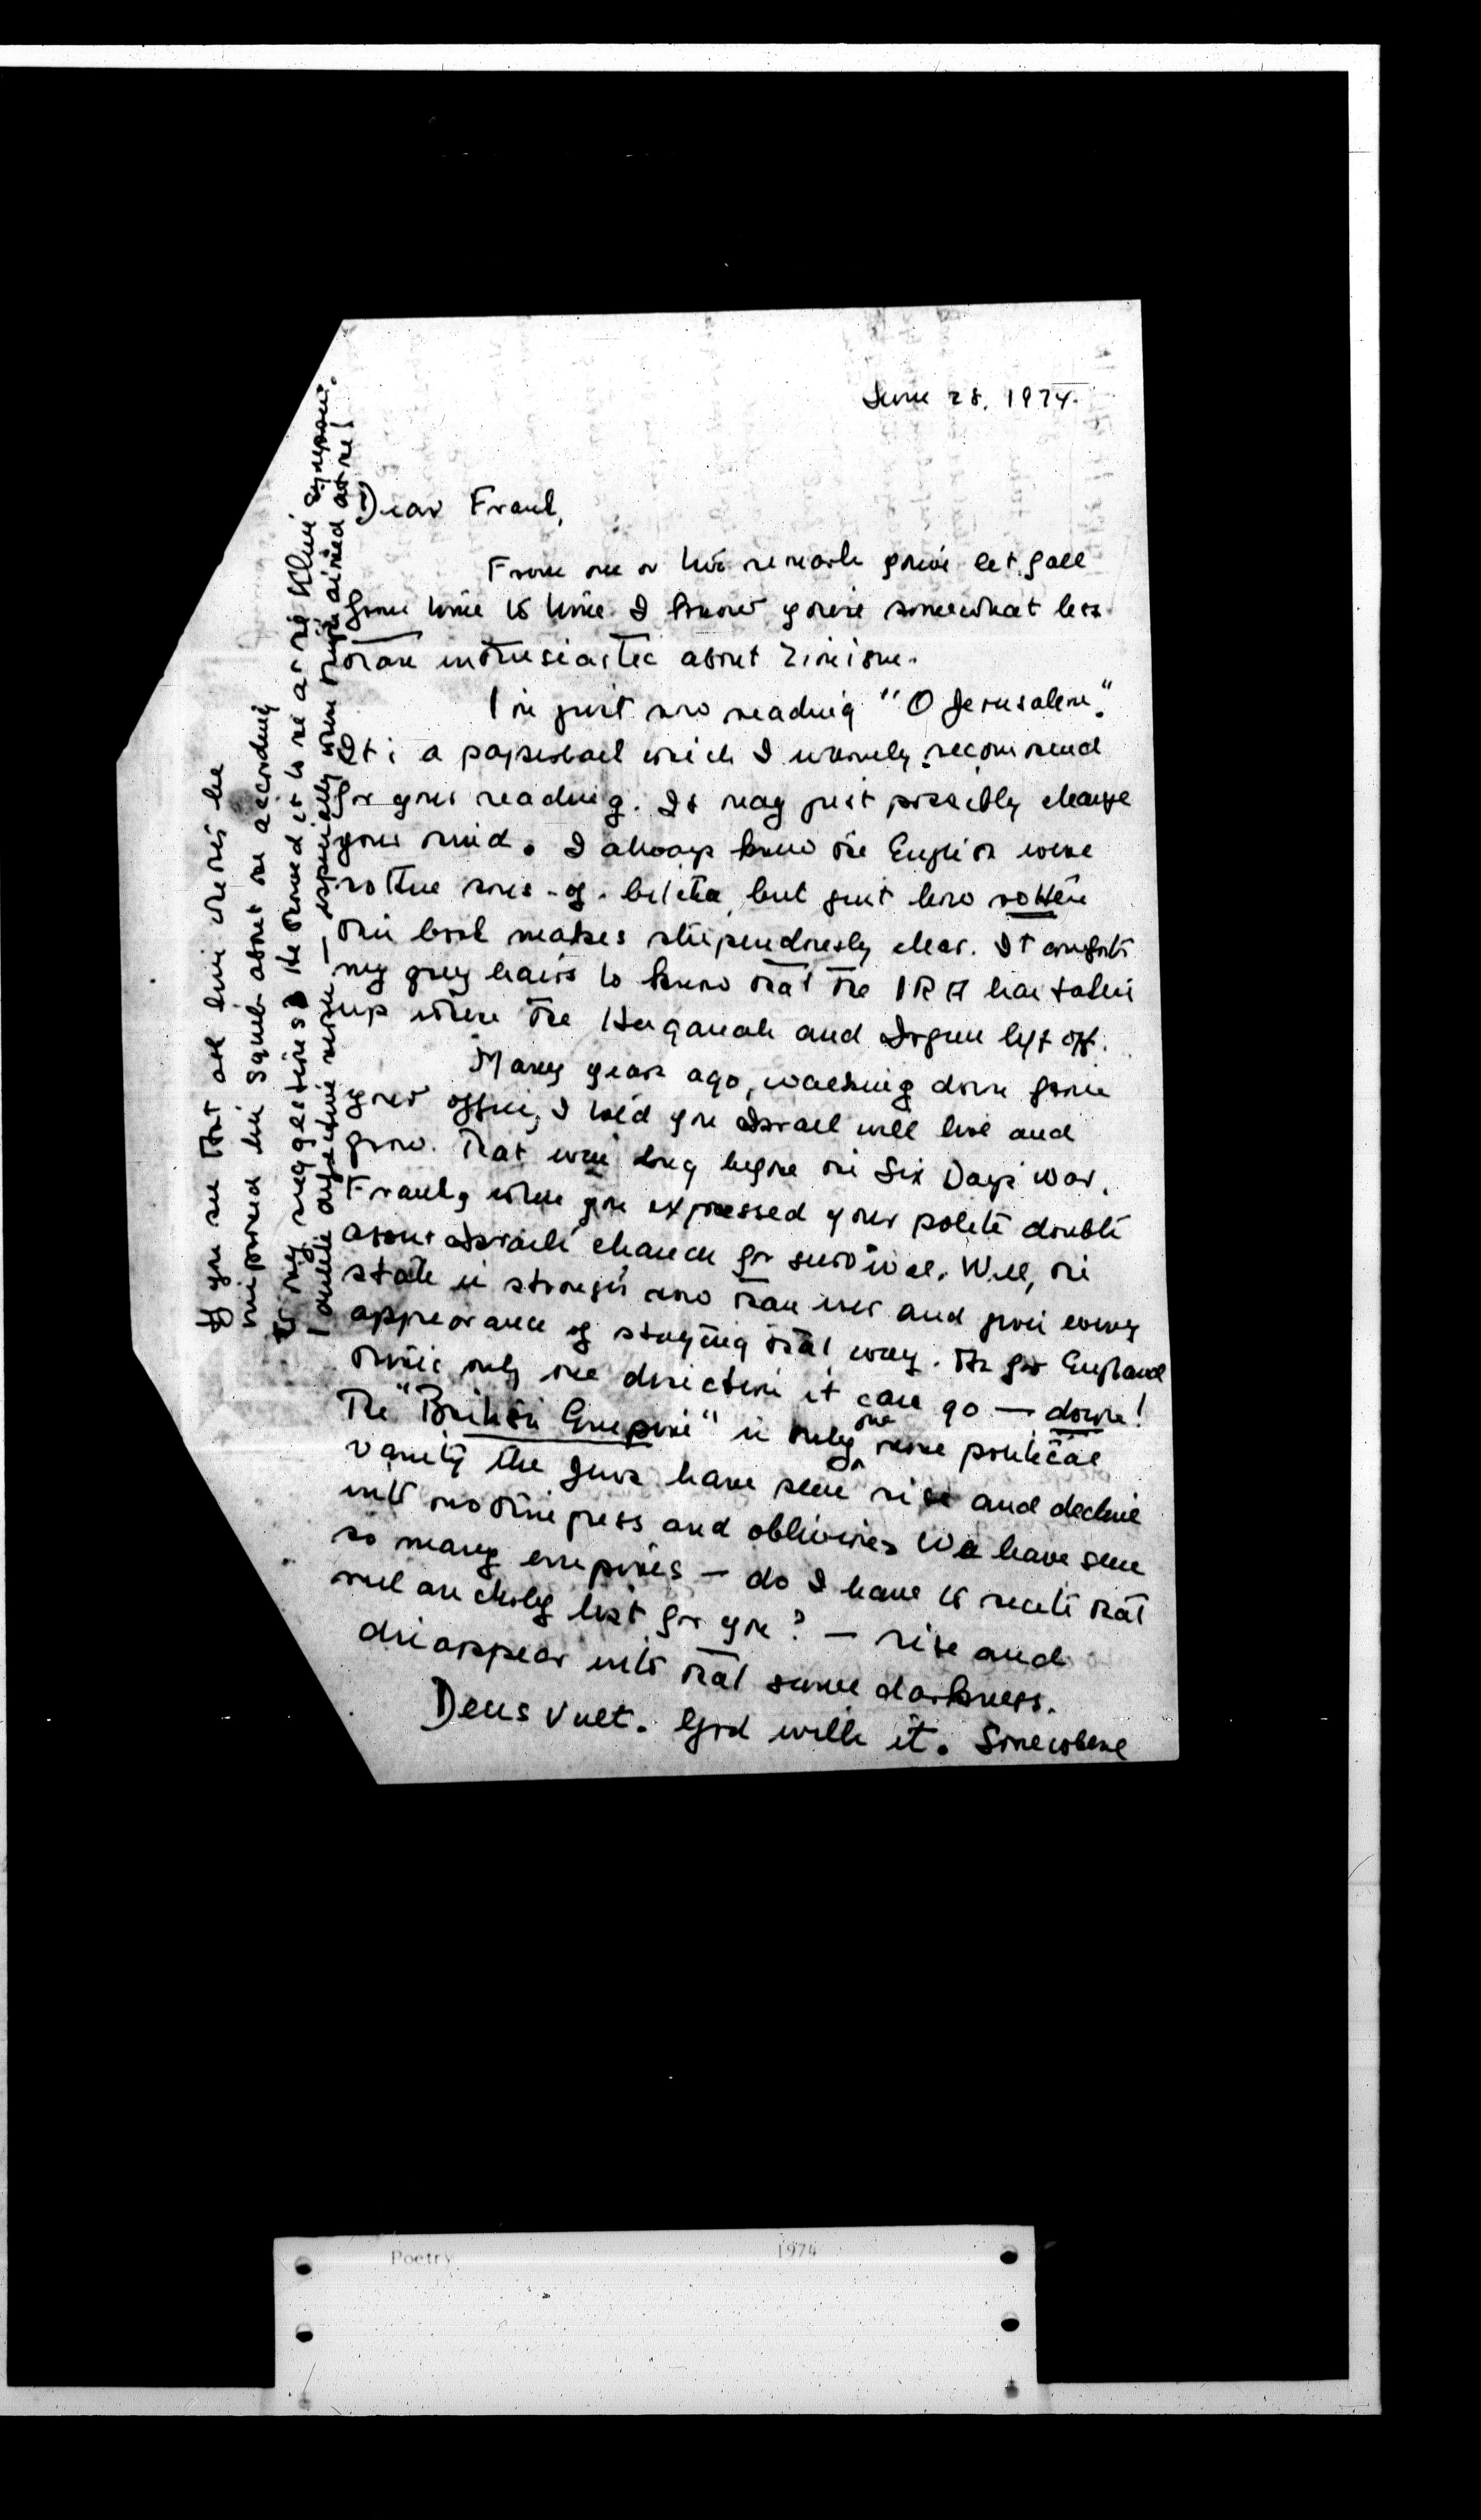 June 28, 1974.
Dear Frank,
From one or two remarks you've let fall
from time to time I know you're somewhat less
than enthusiastic about Zionism.
I'm just now reading "O Jerusalem."
It's a paperback which I warmly recommend
for your reading. It may just possibly change
your mind. I always knew the English were
rotten sons-of-bitches, but just how rotten
this book makes stupendously clear. It comforts
my grey hairs to know that the IRA has taken
up where the Haganah and Irgun left off.
Many years ago, walking down from
your office, I told you Israel will live and
grow. That was long before the Six Days War,
Frank, when you expressed your polite doubts
about Israel's chances for survival. Well, the
state is stronger now than ever and gives every
appearance of staying that way. As for England
there's only one direction it can go — down!
The "British Empire" is only one more political
vanity the Jews have seen rise and decline
into nothingness and oblivion. We have seen
so many empires — do I have to recite that
melancholy list for you? — rise and
disappear into that same darkness.
Deus vult. God wills it. Somewhere
If you see that ask him whether he
improved his squib about me according
to my suggestions. He showed it to me at the Klein symposium.
I dislike defective verse — especially when they're aimed at me!
Poetry 1974